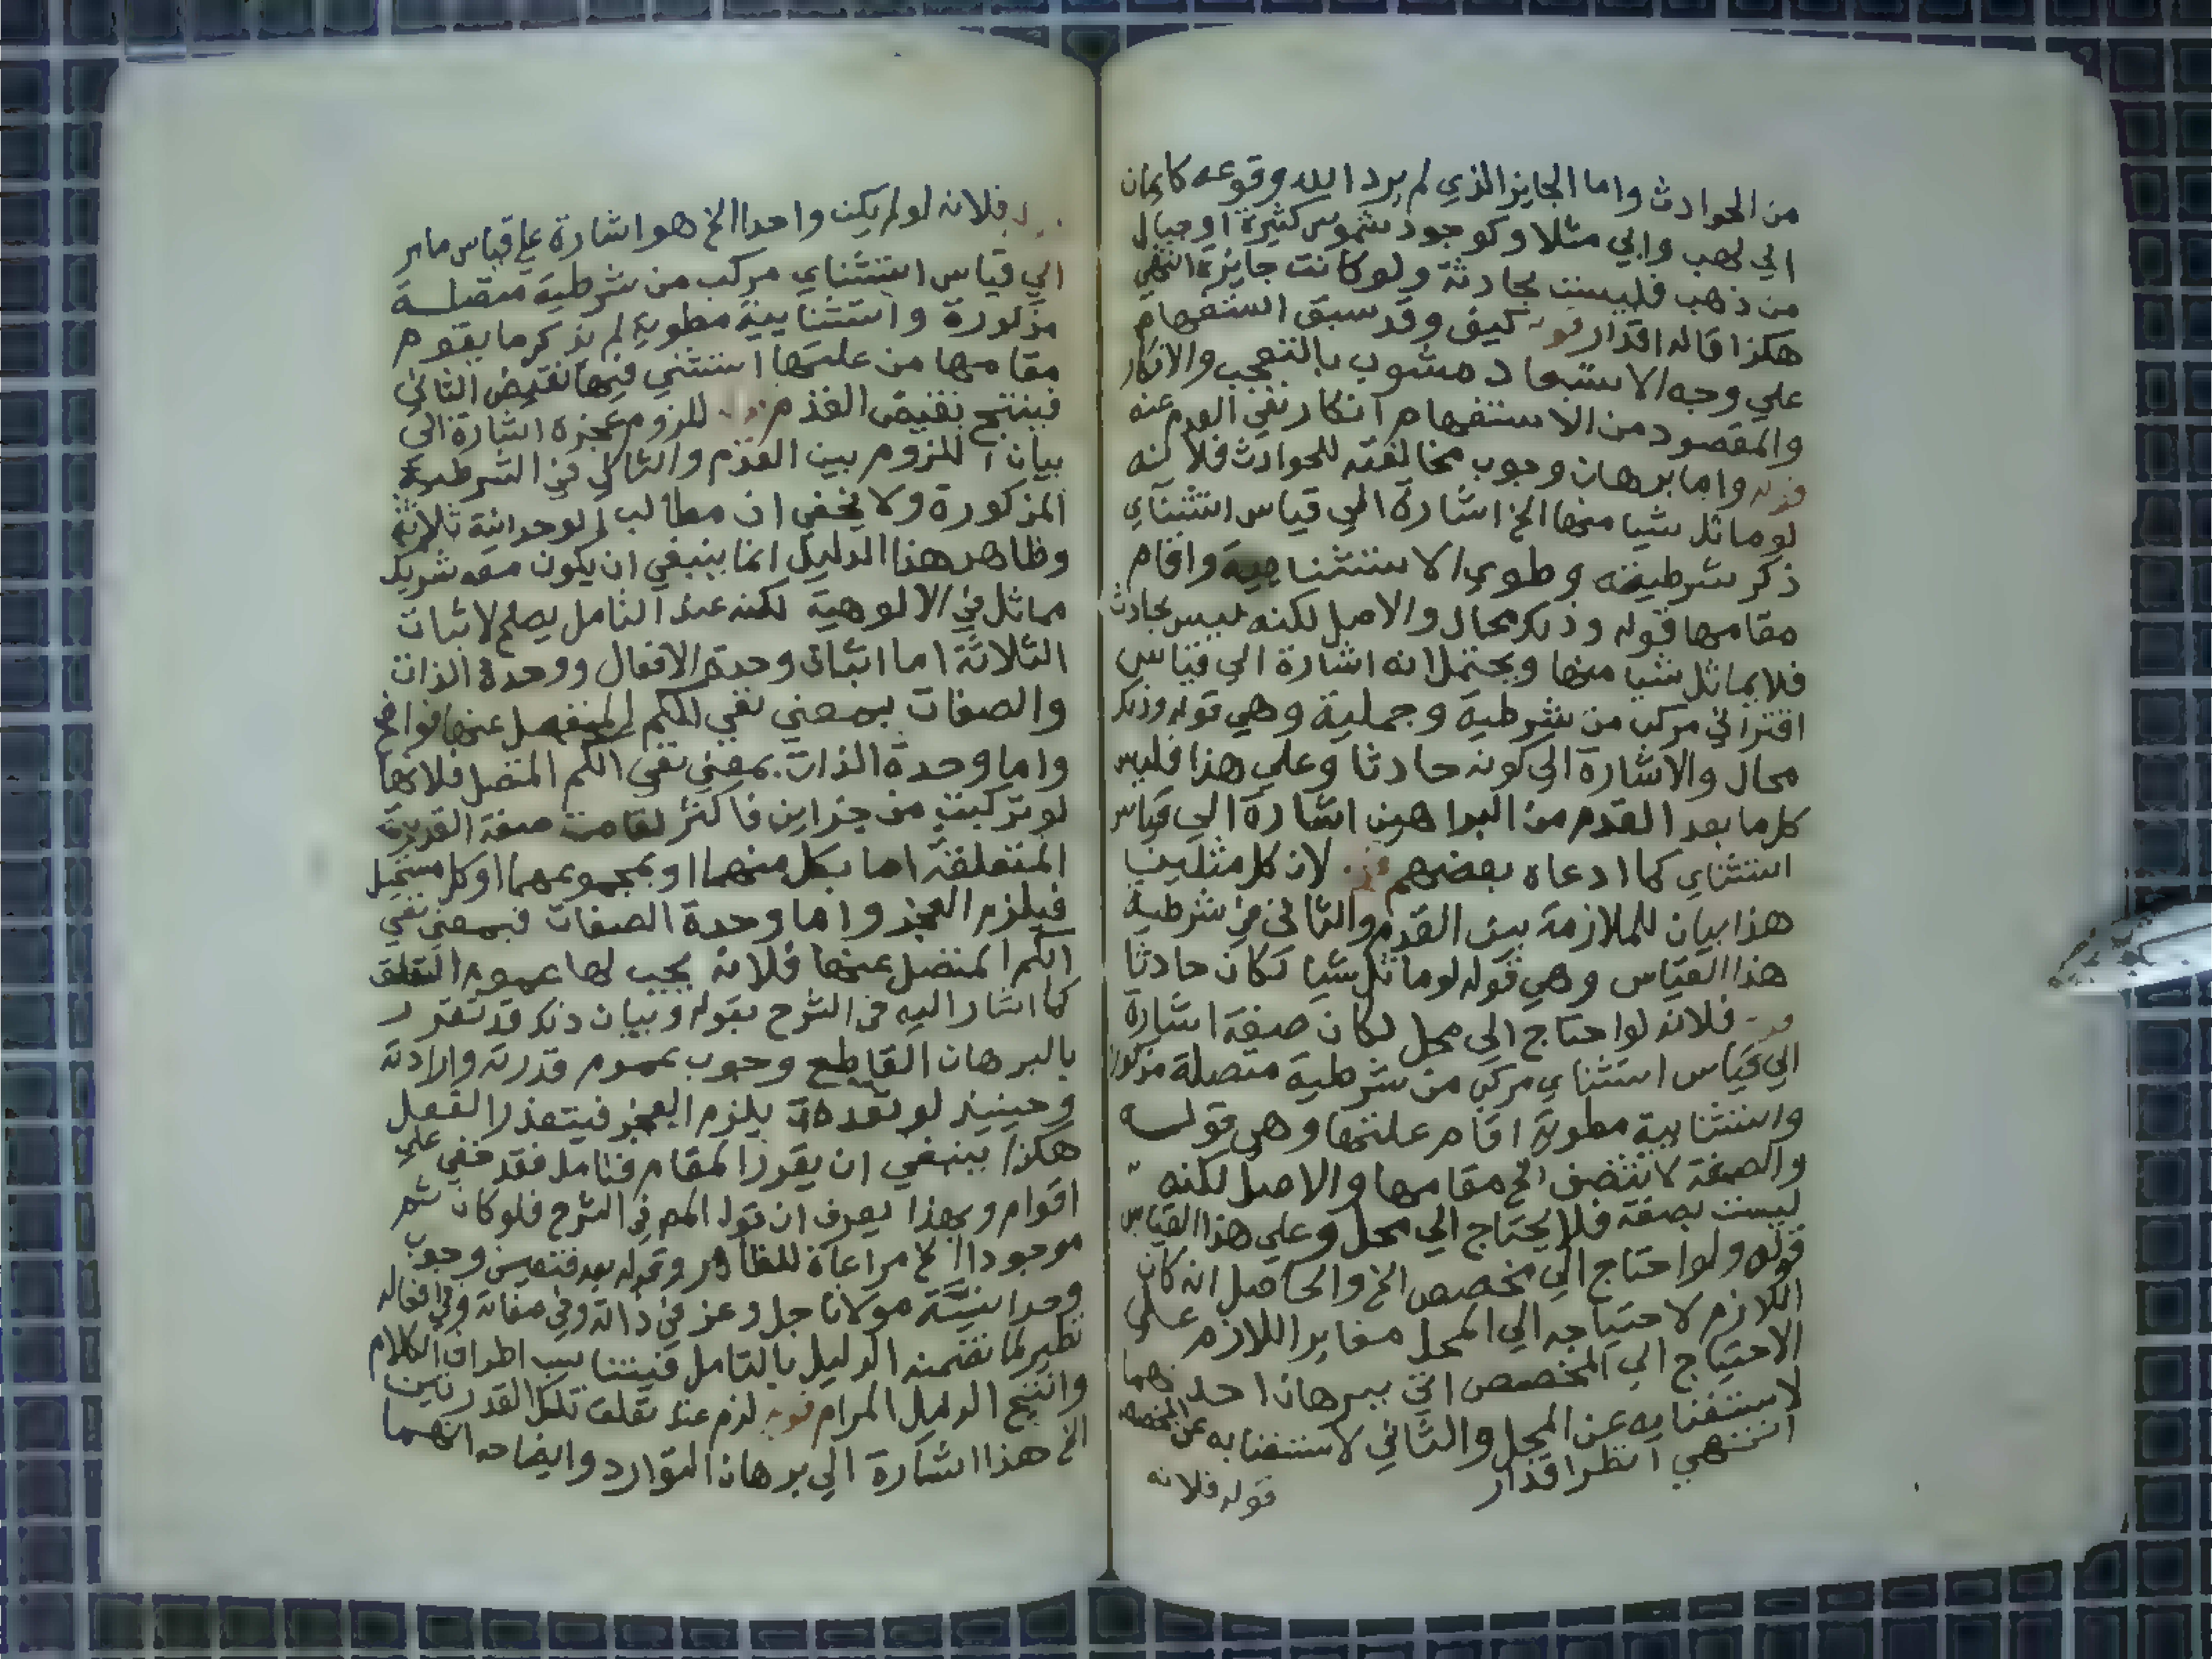 من الحوادث واما الجايز الذي لم يرد الله وقوعه كايمان
ابي لهب وابي مثلا وكوجود شموس كثيرة او جبال
من ذهب فليست بحادثة ولو كانت جايزة انتهي
هكذا قاله اقدار قوله كيف وقد سبق استفهام
علي وجه الاستبعاد مشوب بالتعجب والانكار
والمقصود من الاستفهام انكار نفي العدم عنه
قوله واما برهان وجوب مخالفته للحوادث فلانه
لو ماثل شيا منها الخ اشارة الي قياس استثناي
ذكر شرطيته وطوي الاستثناييه واقام
مقامها قوله وذلك محال والاصل لكنه ليس بحادث
فلا يماثل شيا منها ويحتمل انه اشارة الي قياس
اقتراني مركب من شرطية وحملية وهي قوله وذلك
محال والاشارة الي كونه حادثا وعلي هذا فليس
كل ما بعد القدم من البراهين اشارة الي قياس
استثناي كما ادعاه بعضهم قوله لان كل مثلين
هذا بيان للملازمة بين المقدم والثاني في شرطية
هذا القياس وهي قوله لو ماثل شيا لكان حادثا
قوله فلانه لو احتاج الي محل لكان صفة اشارة
الي قياس استثناي مركب من شرطية متصلة مذكورة
واستثنايية مطوية اقام علتها وهي قوله
والصفة لا تتصف الخ مقامها والاصل لكنه
ليست بصفة فلا يحتاج الي محل وعلي هذا القياس
قوله ولو احتاج الي مخصص الخ والحاصل انه كان
اللازم لاحتياجه الي المحل مغاير اللازم علي
الاحتياج الي المخصص اتي ببرهان احدهما
لاستغنايه عن المحل والثاني لاستغنايه عن المخصص
انتهي انظر اقدار
قوله فلانه
فلانه لو لم يكن واحدا الخ هو اشارة علي قياس ما مر
الي قياس استثناي مركب من شرطية متصلة
مذكورة واستثنايية مطوية لم يذكر ما يقوم
مقامها من علتها استثني فيها نقيض الثاني
فينتج نقيض المقدم قوله للزوم عجزه اشارة الي
بيان اللزوم بين المقدم والتالي في الشرطية
المذكورة ولا يخفي ان مطالب الوحدانية ثلاثة
وظاهر هذا الدليل انما ينبغي ان يكون معه شريك
مماثل في الالوهية لكنه عند التامل يصلح لاثبات
الثلاثة اما اثبات وحدة الافعال ووحدة الذات
والصفات بمعني نفي الكم المنفصل عنها فواضح
واما وحدة الذات بمعني نفي الكم المتصل فلانها
لو تركبت من جزاين فاكثر لقامت صفة القدرة
المتعلقة اما بكل منهما او بمجموعهما او كل مستحيل
فيلزم العجز واما وحدة الصفات فبمعني نفي
الكم المتصل عنها فلانه يجب لها عموم التعلق
كما اشار اليه في الشرح بقوله وبيان ذلك قد تقرر
بالبرهان القاطع وجوب عموم قدرته وارادته
وحينيذ لو تعددت يلزم العجز فيتعذر الفعل
هكذا ينبغي ان يقرر المقام فتامل فقد خفي علي
اقوام وبهذا يعرف ان قوله المص في الشرح فلو كان ثم
موجودا الخ مراعاة للظاهر وقوله بعد فتعين وجوب
وحدانية مولانا جل وعز في ذاته وفي صفاته وفي افعاله
نظير لما تضمنه الدليل بالتامل فيتناسب اطراف الكلام
وانتج الدليل المرام قوله لزم عند تعلق تلك القدرتين
الخ هذا اشارة الي برهان التوارد وايضاحه انهما